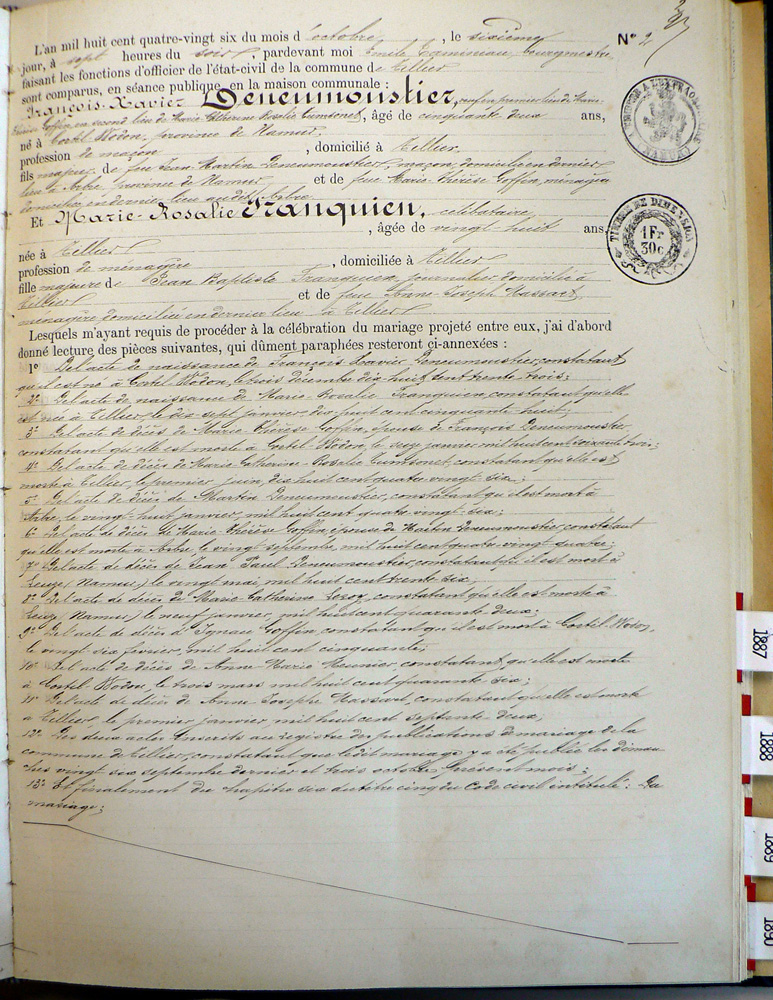 L'an mil huit cent quatre-vingt six du mois d'octobre, le sixième
jour, à sept heures du soir, pardevant moi Emile bourgmestre
N° 2
faisant les fonctions d'officier de l'état-civil de la commune de Tillier
sont comparus, en séance publique, en la maison communale :
François-Xavier Deneumoustier, veuf en premier lieu de Marie-
Thérèse Goffin en second lieu de Marie Catherine Rosalie Tumsonet, âgé de cinquante deux ans,
né à Cortil Wodon, province de Namur,
profession de maçon, domicilié à Tillier,
fils majeur de feu Jean Martin Deneumoustier, maçon, domicilié en dernier
lieu à Arbre, province de Namur, et de feue Marie-Thérèse Goffin, ménagère
domiciliée en dernier lieu audit Arbre
Et Marie-Rosalie Franquien, célibataire,
, âgée de vingt-huit ans,
née à Tillier
profession de ménagère, domiciliée à Tillier
fille majeure de Jean Baptiste Franquien, journalier domicilié à
Tillier et de feue Anne-Joseph Massart,
ménagère domiciliée en dernier lieu à Tillier
Lesquels m'ayant requis de procéder à la célébration du mariage projeté entre eux, j'ai d'abord
donné lecture des pièces suivantes, qui dûment paraphées resteront ci-annexées :
1° De l'acte de naissance de François Xavier Deneumoustier, constatant
qu'il est né à Cortil Wodon, le trois décembre dix huit cent trente trois;
2° De l'acte de naissance de Marie Rosalie Franquien, constatant qu'elle
est née à Tillier, le dix sept janvier, dix huit cent cinquante huit;
3° De l'acte de décès de Marie Thérèse Goffin, épouse de François Deneumoustier
constatant qu'elle est morte à Cortil-Wodon, le janvier, mil huit cent soixante trois;
4° De l'acte de décès de Marie Catherine Rosalie Tumsonet, constatant qu'elle est
morte à Tillier, le premier juin, dix huit cent quatre-vingt-six;
5° De l'acte de décès de Martin Deneumoustier, constatant qu'il est mort à
Arbre, le vingt huit janvier, mil huit cent quatre-vingt-six;
6° De l'acte de décès de Marie Thérèse Goffin épouse de Martin Deneumoustier, constatant
qu'elle est morte à Arbre, le vingt septembre, mil huit cent quatre-vingt-quatre;
7° De l'acte de décès de Jean Paul Deneumoustier, constatant qu'il est mort à
Leuze (Namur) le vingt mai, mil huit cent trente six,
8° De l'acte de décès de Marie-Catherine Leroy, constatant qu'elle est morte à
Leuze (Namur) le neuf janvier, mil huit cent quarante deux;
9° De l'acte de décès d'Ignace Goffin constatant qu'il est mort à Cortil-Wodon,
le vingt dix février, mil huit cent cinquante;
10° De l'acte de décès de Anne-Marie Meunier, constatant qu'elle est morte
à Cortil-Wodon, le trois mars mil huit cent quarante six;
11° De l'acte de décès de Anne Josephe Massart, constatant qu'elle est morte
à Tillier, le premier janvier, mil huit cent septante deux;
12° Des deux actes inscrits au registre des publications de mariage de la
commune de Tillier, constatant que le dit mariage y a été publié les diman-
ches vingt six septembre dernier et trois octobre présent mois;
13° Et finalement du chapitre six du titre cinq du Code civil intitulé: Du
mariage;
TIMBRE DE DIMENSION
1 Fr
30c
1887
1888
1889
1890